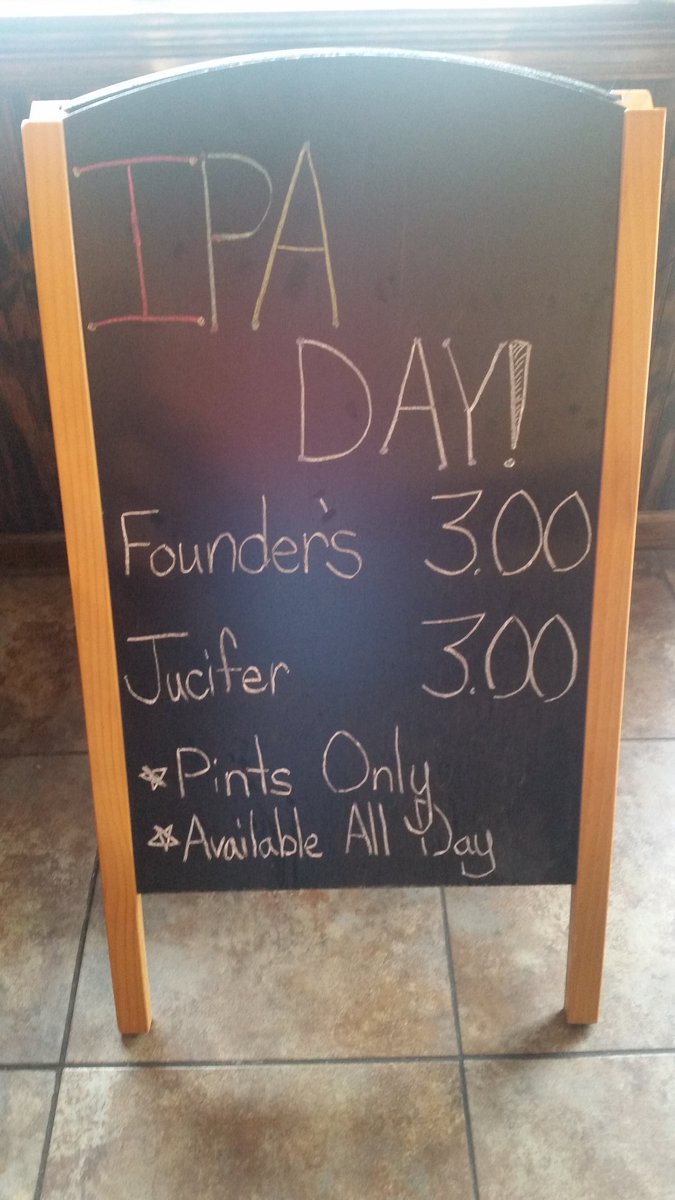 IPA
DAY!
Founder's 3.00
Jucifer 3.00
☆Pints Only
☆Available All Day